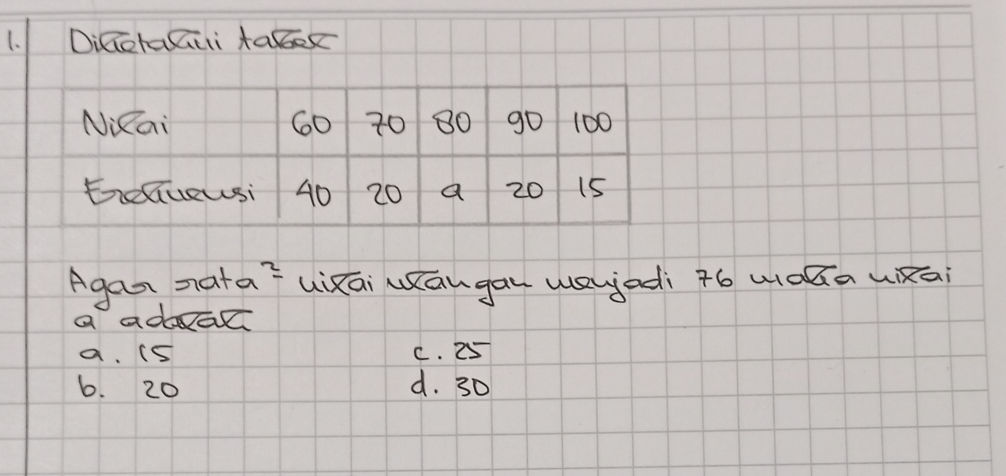 1. Diketahui tabel
Nilai 60 70 80 90 100
Frekuensi 40 20 a 20 15
Agar rata² nilai ulangan menjadi 76 maka nilai
a adalah
a. 15 c. 25
b. 20 d. 30